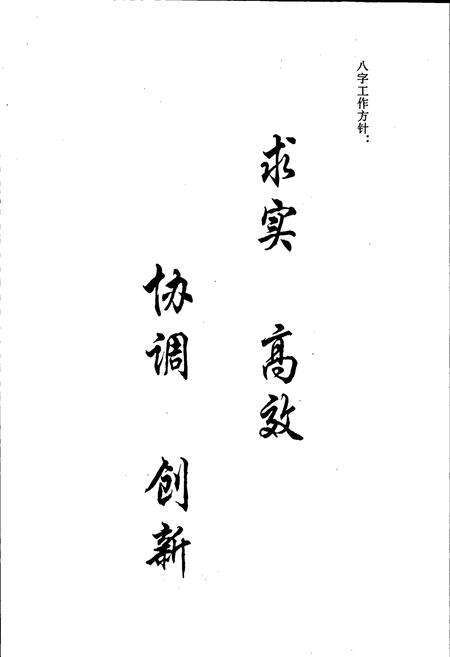 八字工作方针：
求实 高效
协调 创新